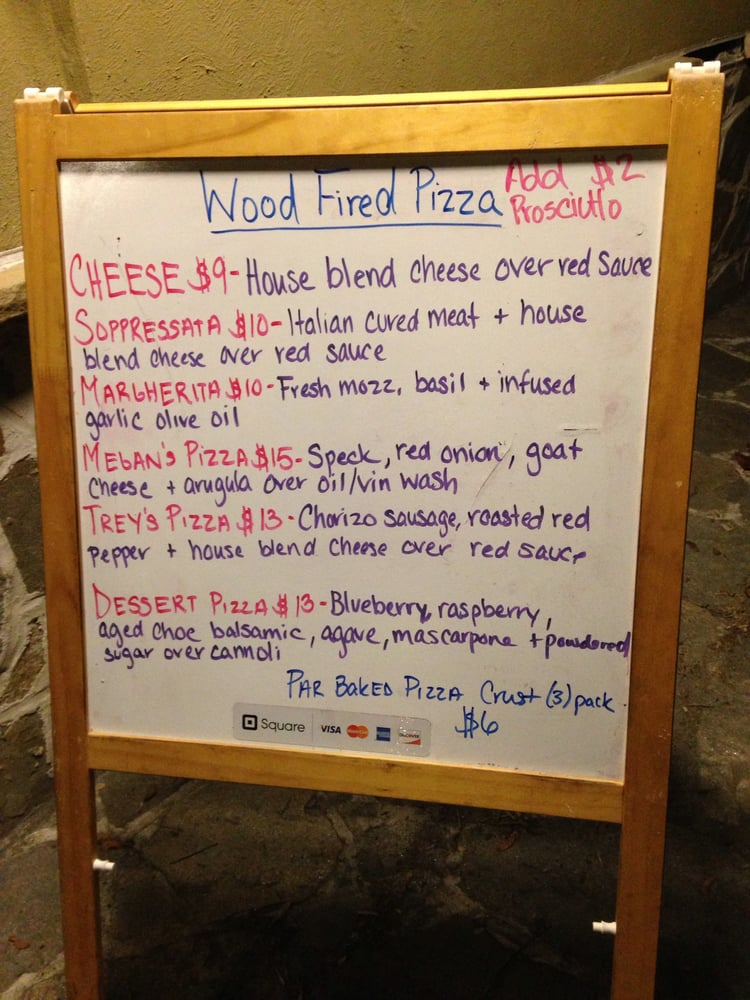 Wood Fired Pizza
Add $2
Prosciutto
CHEESE $9- House blend cheese over red sauce
SOPPRESSATA $10- Italian cured meat + house
blend cheese over red sauce
MARGHERITA $10- Fresh mozz, basil + infused
garlic olive oil
MEGAN'S PIZZA $15- Speck, red onion, goat
cheese + arugula over oil/vin wash
TREY'S PIZZA $13- Chorizo sausage, roasted red
pepper + house blend cheese over red sauce
DESSERT PIZZA $13- Blueberry, raspberry,
aged choc balsamic, agave, mascarpone + powdered
sugar over cannoli
PAR BAKED PIZZA Crust (3) pack
$6
Square VISA MasterCard DISCOVER